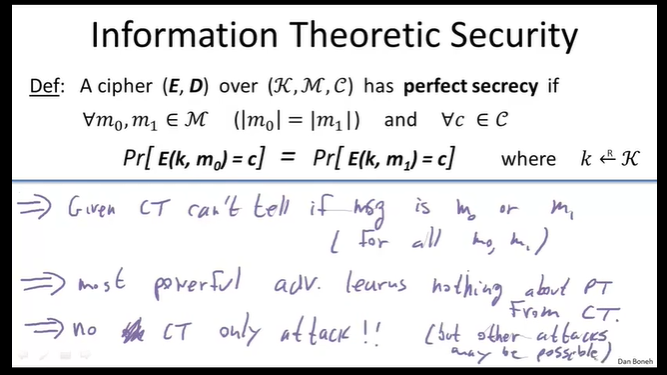 Information Theoretic Security
Def: A cipher (E, D) over (𝒦, ℳ, 𝒞) has perfect secrecy if
∀m₀, m₁ ∈ ℳ (|m₀| = |m₁|) and ∀c ∈ 𝒞
Pr[ E(k, m₀) = c ] = Pr[ E(k, m₁) = c ] where k ←ᴿ 𝒦
⇒ Given CT can't tell if msg is m₀ or m₁
(for all m₀, m₁)
⇒ most powerful adv. learns nothing about PT
From CT.
⇒ no CT only attack!! (but other attacks
may be possible)
Dan Boneh